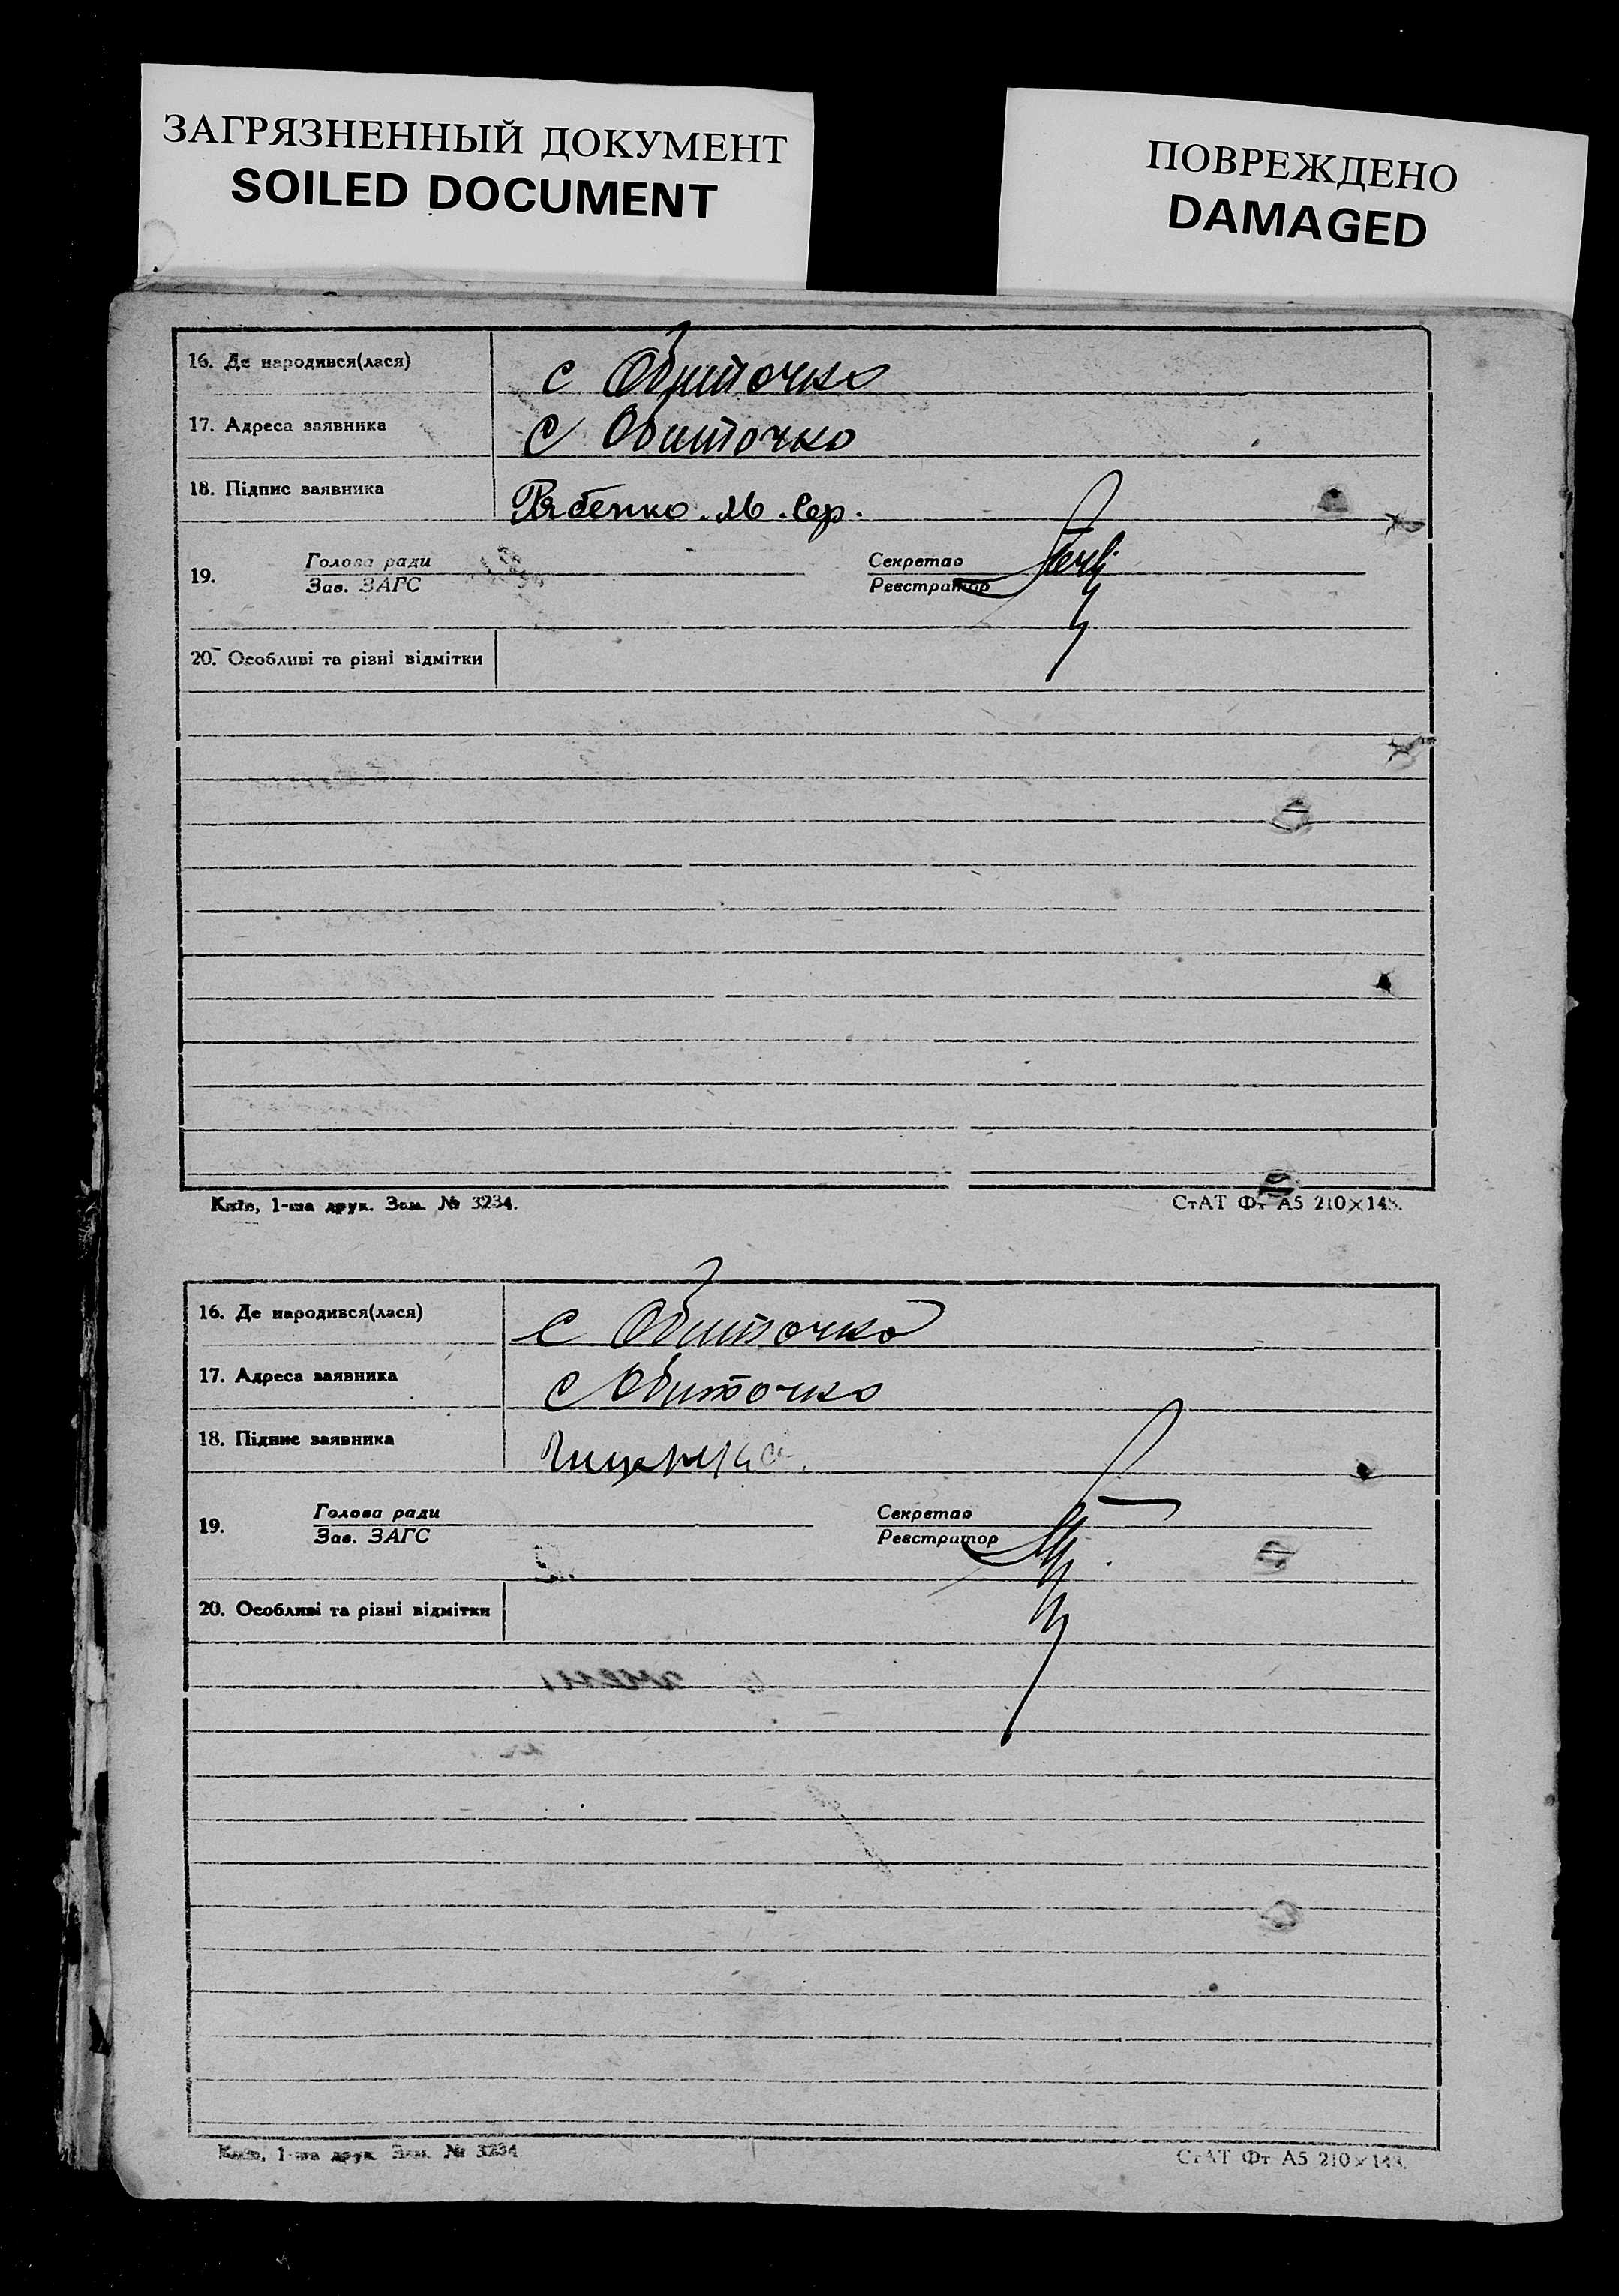 ЗАГРЯЗНЕННЫЙ ДОКУМЕНТ
SOILED DOCUMENT
ПОВРЕЖДЕНО
DAMAGED
16. Де народився(лася) с Обиточко
17. Адреса заявника с Обиточко
18. Підпис заявника Рябенко. М. Сер.
19. Голова ради Секретар
Зав. ЗАГС Реєстратор
20. Особливі та різні відмітки
Київ, 1-ша друк. Зам. № 3234. СтАТ Фт А5 210×148.
16. Де народився(лася) с Обиточко
17. Адреса заявника с Обиточко
18. Підпис заявника
19. Голова ради Секретар
Зав. ЗАГС Реєстратор
20. Особливі та різні відмітки
Київ, 1-ша друк. Зам. № 3234 СтАТ Фт А5 210×148.